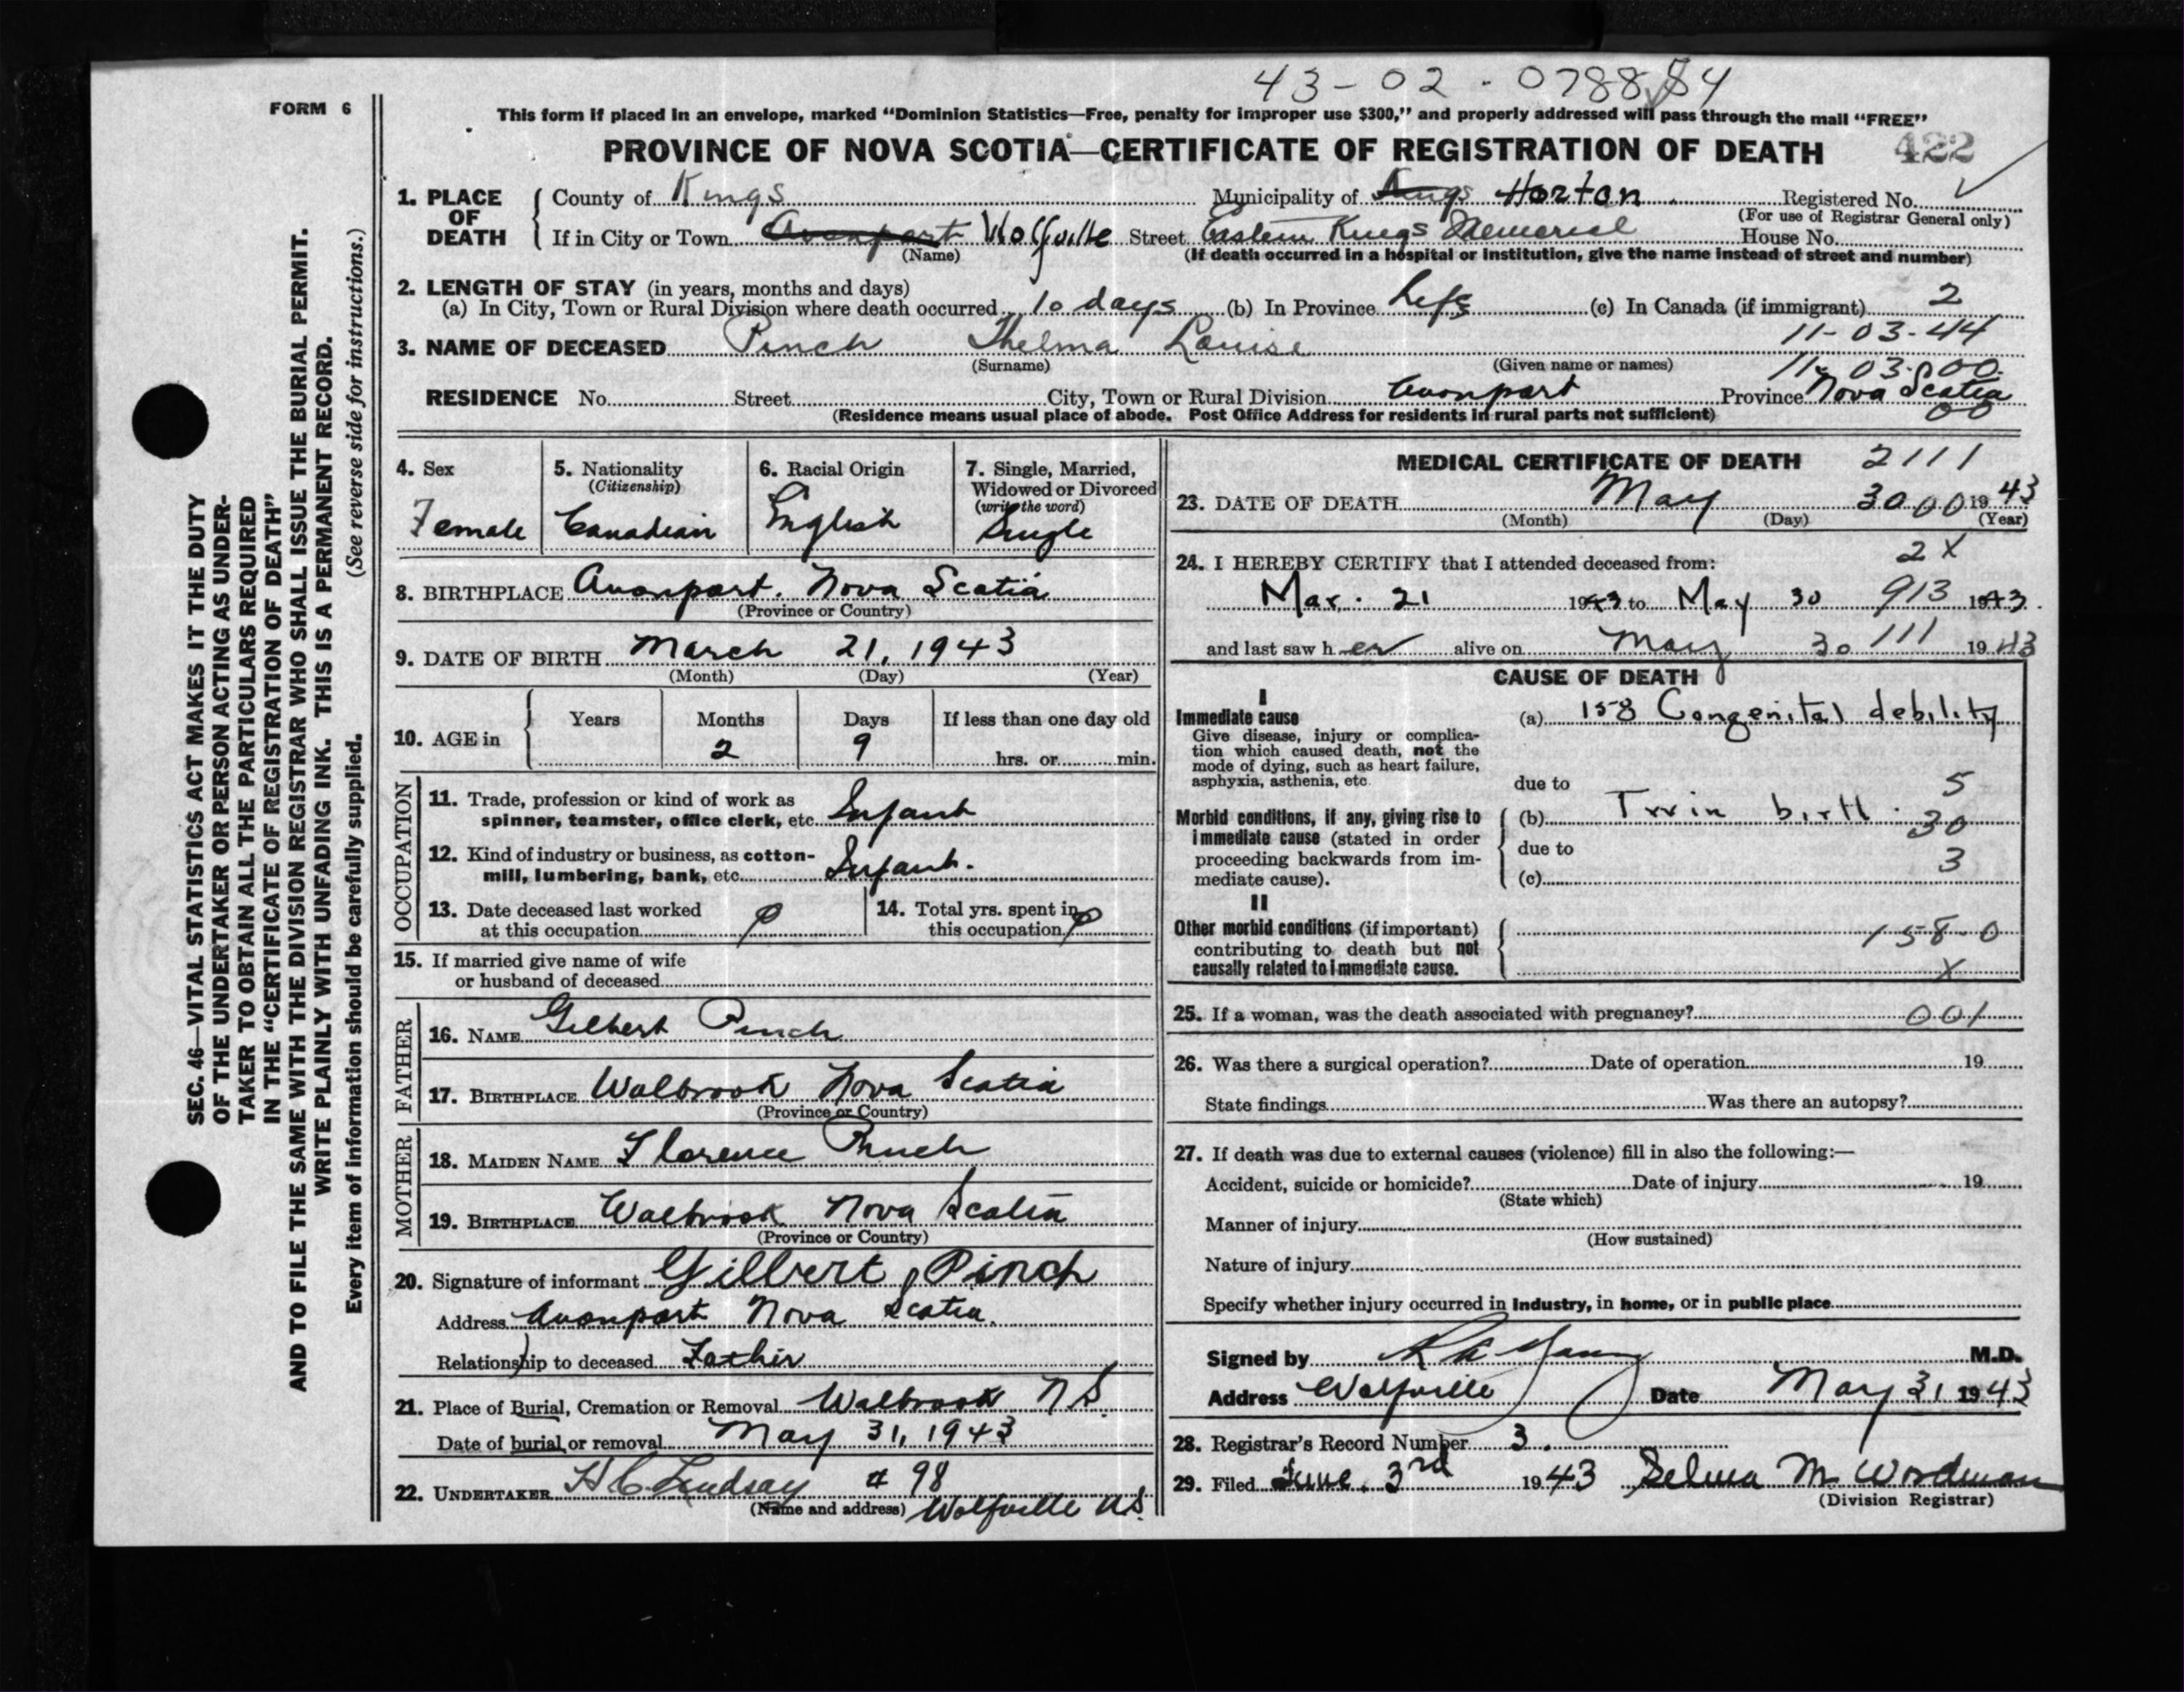 43-02-078854
FORM 6
This form if placed in an envelope, marked "Dominion Statistics—Free, penalty for improper use $300," and properly addressed will pass through the mail "FREE"
PROVINCE OF NOVA SCOTIA—CERTIFICATE OF REGISTRATION OF DEATH 422
1. PLACE OF DEATH
County of Kings Municipality of Kings Horton Registered No.
(For use of Registrar General only)
If in City or Town Avonport Wolfville Street Eastern Kings Memorial House No.
(Name) (If death occurred in a hospital or institution, give the name instead of street and number)
2. LENGTH OF STAY (in years, months and days)
(a) In City, Town or Rural Division where death occurred 10 days (b) In Province Life (c) In Canada (if immigrant) 2
11-03-44
3. NAME OF DECEASED Pinch Thelma Louise
(Surname) (Given name or names) 11-03-00
RESIDENCE No. Street City, Town or Rural Division Avonport Province Nova Scotia
(Residence means usual place of abode. Post Office Address for residents in rural parts not sufficient) 00
4. Sex Female
5. Nationality (Citizenship) Canadian
6. Racial Origin English
7. Single, Married, Widowed or Divorced (write the word) Single
8. BIRTHPLACE Avonport. Nova Scotia
(Province or Country)
9. DATE OF BIRTH March 21, 1943
(Month) (Day) (Year)
10. AGE in Years Months Days If less than one day old
2 9 hrs. or min.
OCCUPATION
11. Trade, profession or kind of work as spinner, teamster, office clerk, etc. Infant
12. Kind of industry or business, as cotton-mill, lumbering, bank, etc. Infant.
13. Date deceased last worked at this occupation 0
14. Total yrs. spent in this occupation 0
15. If married give name of wife or husband of deceased
FATHER
16. NAME Gilbert Pinch
17. BIRTHPLACE Walbrook Nova Scotia
(Province or Country)
MOTHER
18. MAIDEN NAME Florence Pinch
19. BIRTHPLACE Walbrook Nova Scotia
(Province or Country)
20. Signature of informant Gilbert Pinch
Address Avonport Nova Scotia.
Relationship to deceased Father
21. Place of Burial, Cremation or Removal Walbrook N S.
Date of burial or removal May 31, 1943
22. UNDERTAKER H C Lindsay # 98
(Name and address) Wolfville NS.
MEDICAL CERTIFICATE OF DEATH 2111
23. DATE OF DEATH May 30 00 1943
(Month) (Day) (Year)
24. I HEREBY CERTIFY that I attended deceased from: 2 X
Mar. 21 1943 to May 30 913 1943.
and last saw her alive on May 30 111 1943
CAUSE OF DEATH
I
Immediate cause
Give disease, injury or complication which caused death, not the mode of dying, such as heart failure, asphyxia, asthenia, etc.
(a) 158 Congenital debility
due to 5
Morbid conditions, if any, giving rise to immediate cause (stated in order proceeding backwards from immediate cause).
(b) Twin birth. 30
due to 3
(c)
II
Other morbid conditions (if important) contributing to death but not causally related to immediate cause.
158-0
X
25. If a woman, was the death associated with pregnancy? 001
26. Was there a surgical operation? Date of operation 19
State findings Was there an autopsy?
27. If death was due to external causes (violence) fill in also the following:—
Accident, suicide or homicide? Date of injury 19
(State which)
Manner of injury
(How sustained)
Nature of injury
Specify whether injury occurred in Industry, in home, or in public place
Signed by M.D.
Address Wolfville Date May 31 1943
28. Registrar's Record Number 3.
29. Filed June 3rd 1943 Selma M. Wordman
(Division Registrar)
SEC. 46—VITAL STATISTICS ACT MAKES IT THE DUTY
OF THE UNDERTAKER OR PERSON ACTING AS UNDER-
TAKER TO OBTAIN ALL THE PARTICULARS REQUIRED
IN THE "CERTIFICATE OF REGISTRATION OF DEATH"
AND TO FILE THE SAME WITH THE DIVISION REGISTRAR WHO SHALL ISSUE THE BURIAL PERMIT.
WRITE PLAINLY WITH UNFADING INK. THIS IS A PERMANENT RECORD.
Every item of information should be carefully supplied. (See reverse side for instructions.)